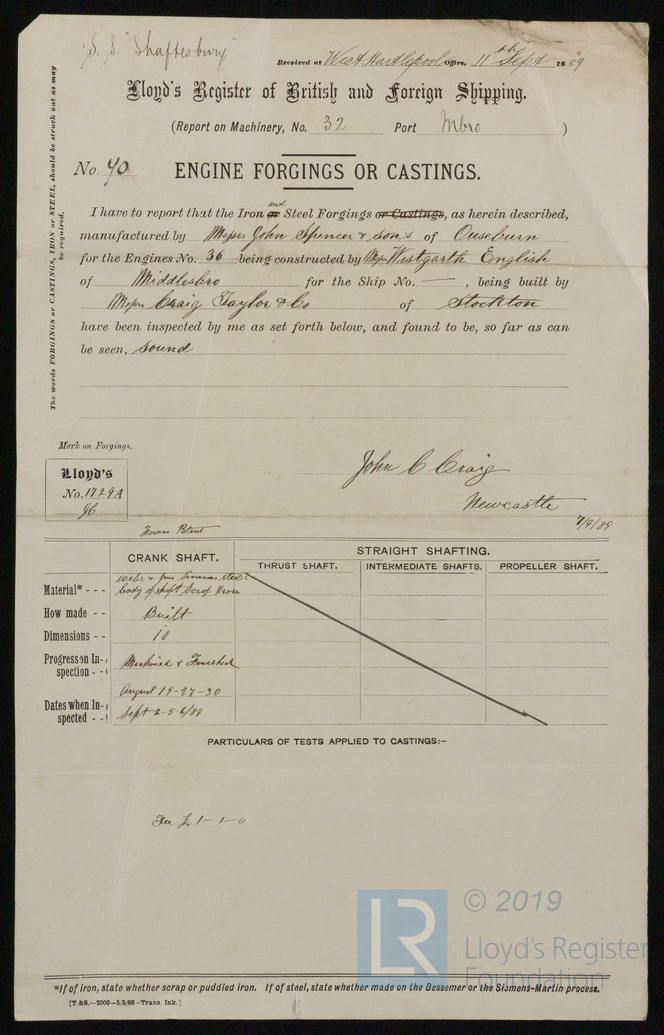 S. S. "Shaftesbury"
Received at West Hartlepool Office, 11th Sept 1889
Lloyd's Register of British and Foreign Shipping.
(Report on Machinery, No. 32 Port Mbro )
No. 40 ENGINE FORGINGS OR CASTINGS.
The words FORGINGS or CASTINGS, IRON or STEEL, should be struck out as may be required.
I have to report that the Iron or and Steel Forgings or Castings, as herein described,
manufactured by Messrs John Spencer & sons of Ouseburn
for the Engines No. 36 being constructed by Messrs Westgarth English
of Middlesbro for the Ship No. — , being built by
Messrs Craig Taylor & Co of Stockton
have been inspected by me as set forth below, and found to be, so far as can
be seen, sound
Mark on Forgings.
Lloyd's
No. 1729A
JC
John C Craig
Newcastle
7/9/89
Patent
CRANK SHAFT. STRAIGHT SHAFTING.
THRUST SHAFT. INTERMEDIATE SHAFTS. PROPELLER SHAFT.
Material* - - - webs & pins Siemens steel
body of shaft Scrap Iron
How made - - Built
Dimensions - - 10
Progress on Inspection - - Machined & Finished
Dates when Inspected - - August 19-27-30
Sept 2-5-6/89
PARTICULARS OF TESTS APPLIED TO CASTINGS:—
Fee £1-1-0
© 2019
LR
Lloyd's Register
Foundation
*If of iron, state whether scrap or puddled iron. If of steel, state whether made on the Bessemer or the Siemens-Martin process.
[T.&S.—2000—5/3/88—Trans. Ink.]